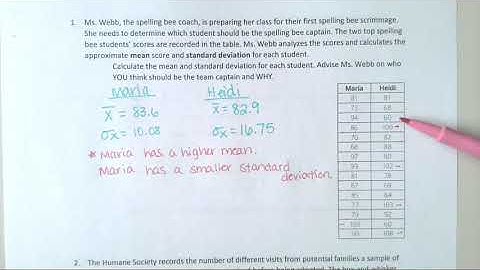 1. Ms. Webb, the spelling bee coach, is preparing her class for their first spelling bee scrimmage.
She needs to determine which student should be the spelling bee captain. The two top spelling
bee students' scores are recorded in the table. Ms. Webb analyzes the scores and calculates the
approximate mean score and standard deviation for each student.
Calculate the mean and standard deviation for each student. Advise Ms. Webb on who
YOU think should be the team captain and WHY.
Maria Heidi
x̄ = 83.6 x̄ = 82.9
σx = 10.08 σx = 16.75
* Maria has a higher mean.
Maria has a smaller standard
deviation.
Maria Heidi
81 81
73 68
94 60
86 109
70 82
68 88
97 80
93 102
81 78
67 69
85 64
77 103
79 52
60
108
2. The Humane Society records the number of different visits from potential families a sample of